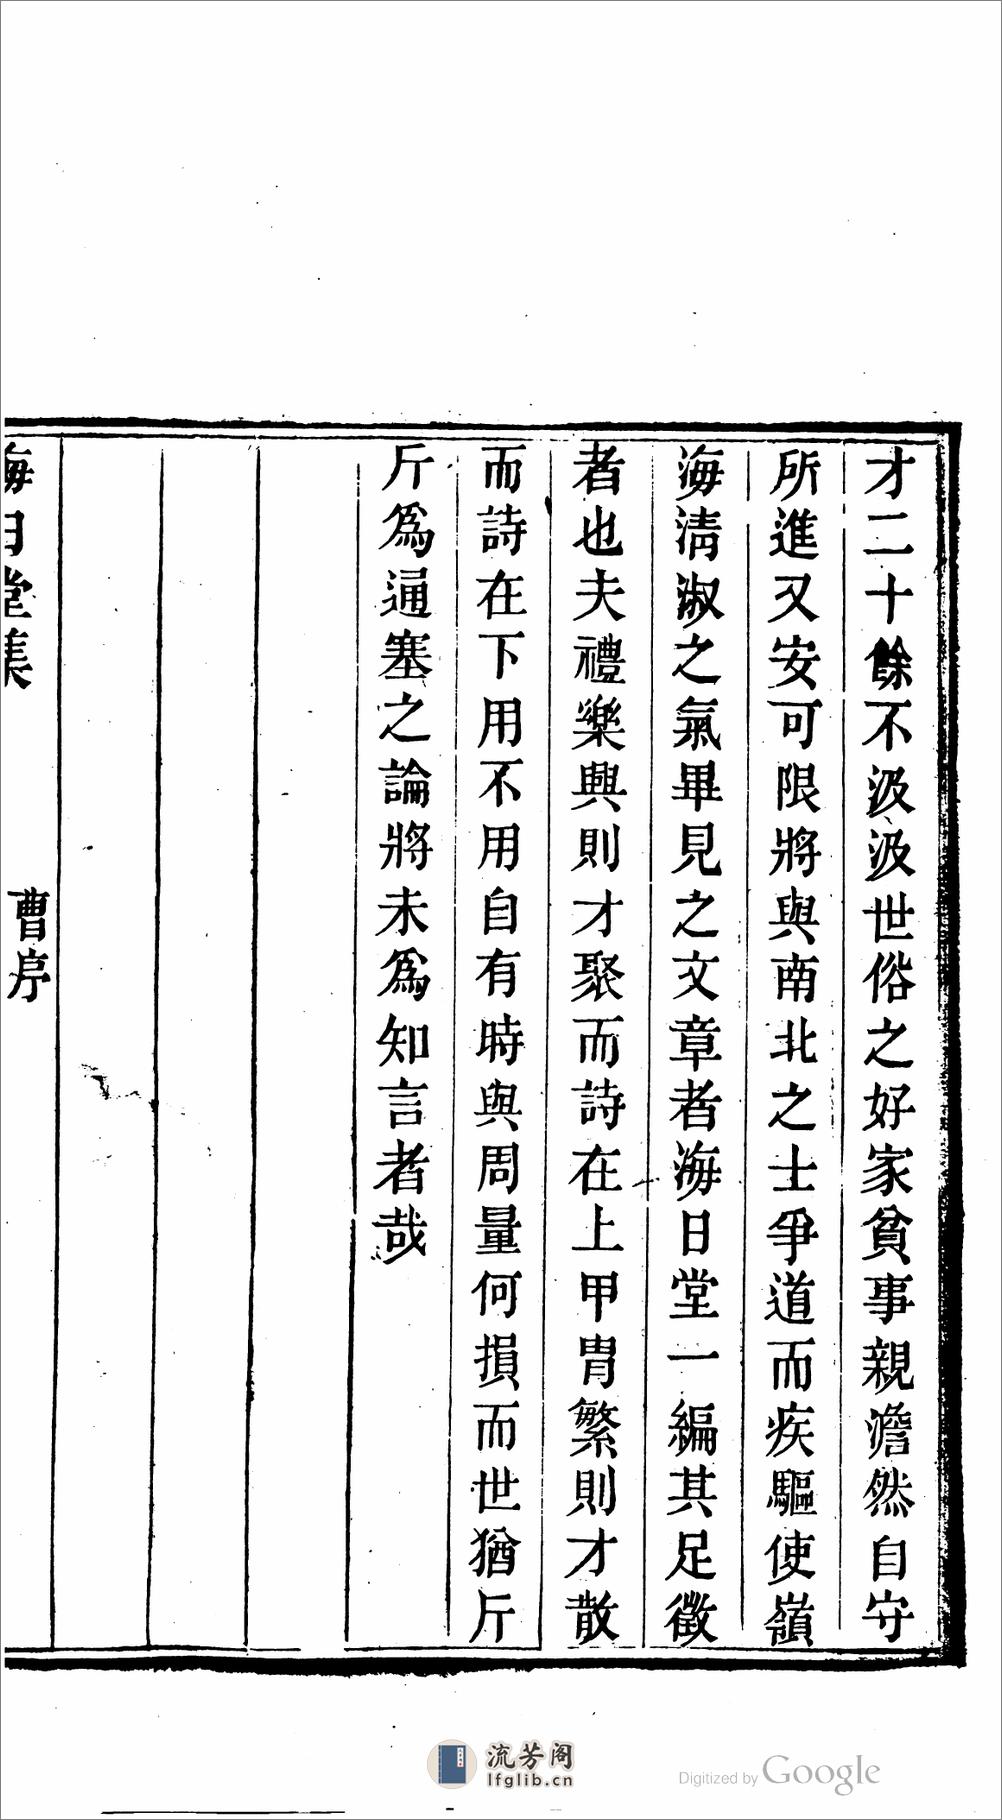 才二十餘不汲汲世俗之好家貧事親澹然自守
所進又安可限將與南北之士爭道而疾驅使嶺
海淸淑之氣畢見之文章者海日堂一編其足徵
者也夫禮樂興則才聚而詩在上甲胄繁則才散
而詩在下用不用自有時與周量何損而世猶斤
斤爲通塞之論將未爲知言者哉
海日堂集
曹序
流芳阁
lfglib.cn
Digitized by Google